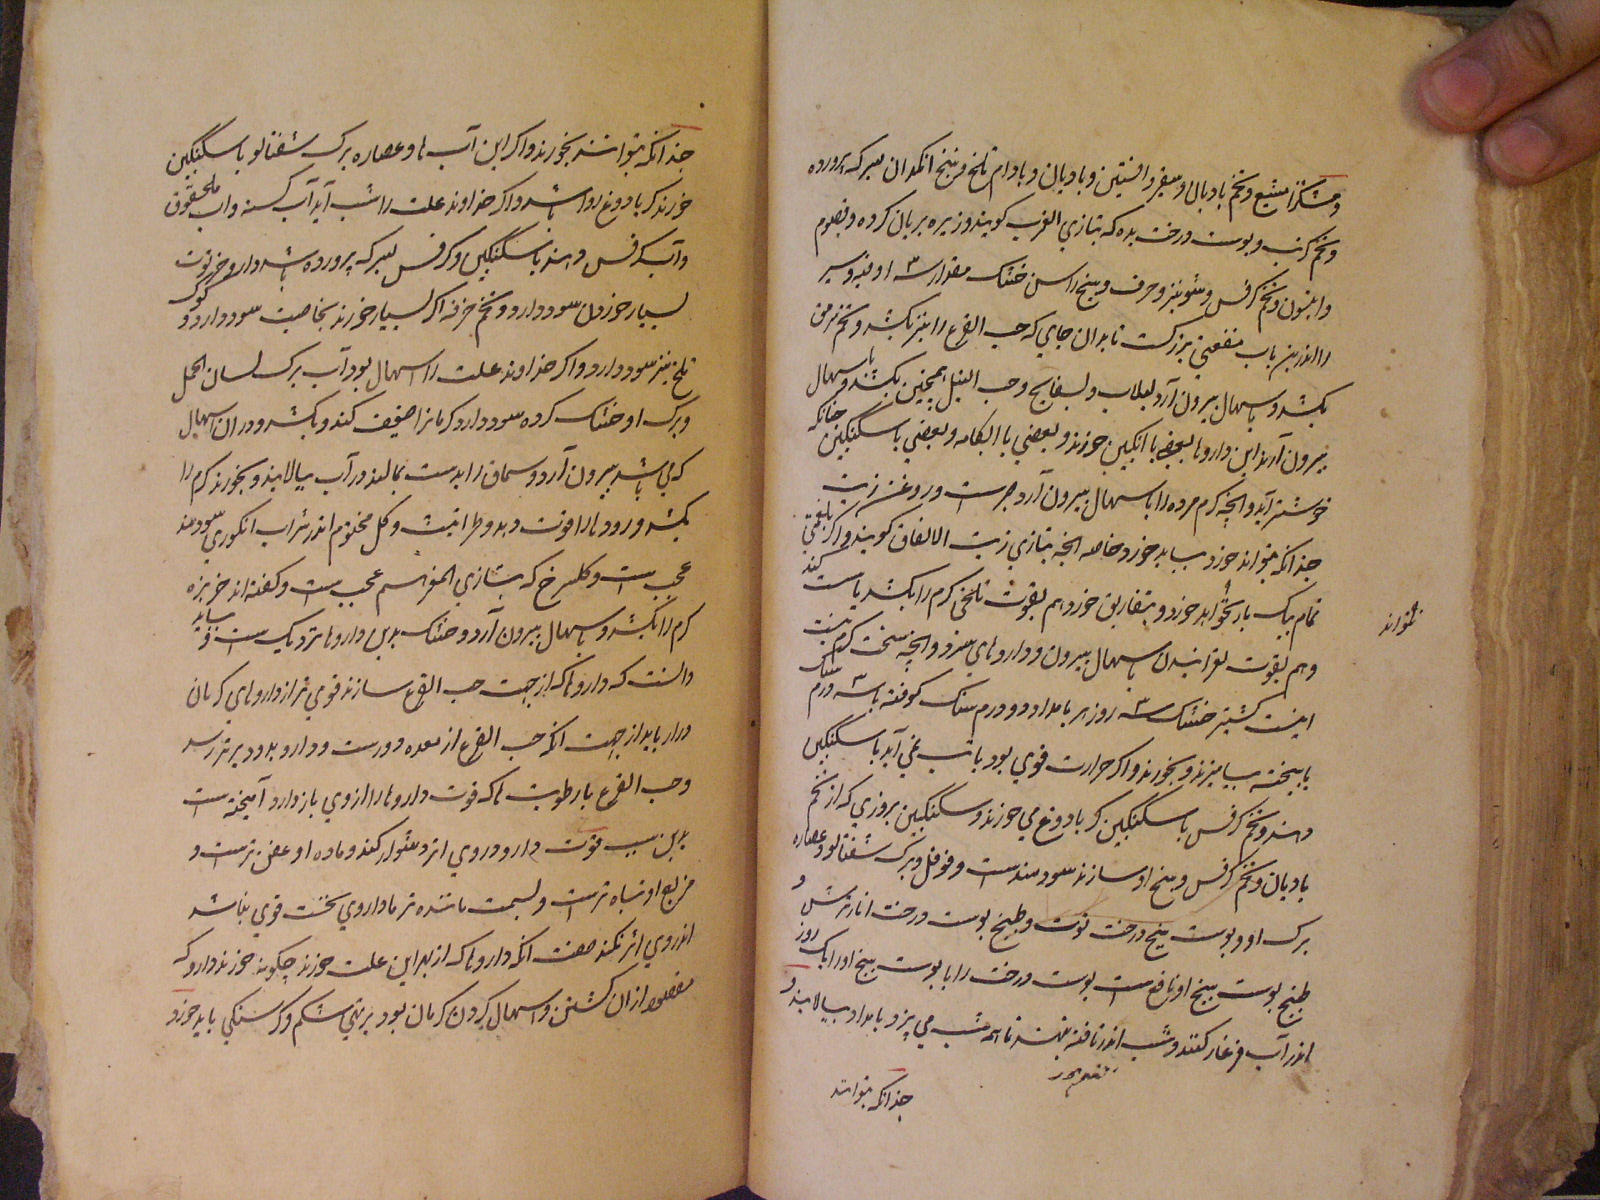 و مشکترامشیع و تخم بادیان و سیغر و افسنتین و بادیان و بادام تلخ و برنج انکدان بسرکه پرورده
و تخم کرنب و پوست درخت بده که بتازی الغرب کویند و زیره بریان کرده و قیصوم
و انیسون و تخم کرفس و شونیز و حرف و بیخ راسن خشک مقدار ۳ اوقیه و سیر
را اندرین باب منفعتی بزرکست تا بدان جای که حب القرع را نیز بکشد و تخم ترمس
بکشد و باسهال بیرون آرد لبلاب و بسفایج و حب النیل همچنین بکشند و باسهال
بیرون آرند این داروها بعضی با انکبین خورند و بعضی با آبکامه و بعضی با سکنکبین چنانکه
خوشتر آید و انچه کرم مرده را باسهال بیرون آرد صبرست و روغن زیت
چندانکه بتواند خورد بباید خورد خاصه انچه بتازی زیت الانفاق کویند و اکر
تمام بیک بار نتواند خورد و بتفاریق خورد هم بقوت تلخی کرم را بکشد
و هم بقوت لغزانیدن باسهال بیرون و داروهای سرد و انچه سخت کرم نیست
اینست کشنیز خشک ۳ روز هر بامداد دو درم سنک کوفته با ۳ درم سنک
با پیخته بیامیزند و بخورند و اکر حرارت قوی بود یا تب می آید با سکنکبین
دهند و تخم کرفس با سکنکبین کر با دوغ می خورند و سکنکبین بزوری که از تخم
بادیان و تخم کرفس و بیخ او سازند سودمندست و فوفل و برک شفتالو و عصاره
برک او و پوست بیخ درخت توت و طبیخ پوست درخت انار ترش و
طبیخ پوست بیخ او نافع است پوست درخت را با پوست بیخ او را یک روز
اندر آب فرغار کنند و شب اندر تافته نهند تا همه شب می پزد و بامداد بپالایند و
چندانکه بتوانند
چندانکه بتوانند بخورند و اکر این آب ها و عصاره برک شفتالو با سکنکبین
خورند کر با دوغ روا باشد و اکر خداوند علت را شب آید آب کسنه و آب
و آب کرفس دهند با سکنکبین و کرفس بسرکه پرورده باشد دارو خر توت
بسیار خوردن سود دارد و تخم خرفه اکر بسیار خورند بخاصیت سود دارد و کوک
تلخ نیز سود دارد و اکر خداوند علت را اسهال بود آب برک لسان الحمل
و برک او خشک کرده سود دارد کرمانرا ضعیف کند و بکشد و در ان اسهال
که می باشد بیرون آرد و سماق را بدست بمالند در آب بپالایند و بخورند کرم را
بکشد و رودها را قوت دهد و طراثیث و کل مختوم اندر شراب انکوری سودمند
عجیب است و کلسرخ که بتازی المغره سم عجیب ست و کفته اند خربزه
کرم را بکشد و باسهال بیرون آرد و خشک بدین داروها نزدیک ست و بباید
دانست که داروها که از جهت حب القرع سازند قوی تر از داروهای کرمان
دراز باید از جهت انکه حب القرع از معده دورست و دارو بدو دیرتر رسد
و حب القرع با رطوبت ها که قوت داروها را از وی باز دارد آمیخته است
بدین سبب قوت دارو در وی اثر دشوار کند و ماده او عفن ترست و
مزاج او تباه ترست و بسمیت ماننده تر تا داروی سخت قوی نباشد
اندر وی اثر نکند صفت انکه داروها که از بهر این علت خورند چکونه خورند دارو که
مقصود از ان کشتن و اسهال کردن کرمان بود بر تهی شکم و کرسنکی باید خورد